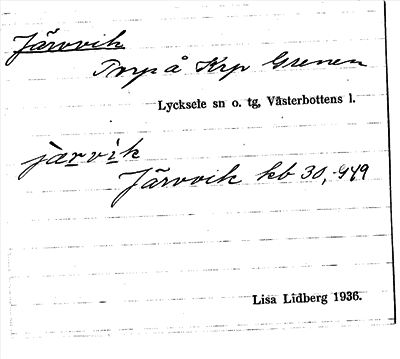 Järvvik
Torp å Krp Grenen
Lycksele sn o. tg, Västerbottens l.
jàrvìk
Järvvik kb 30, 949
Lisa Lidberg 1936.